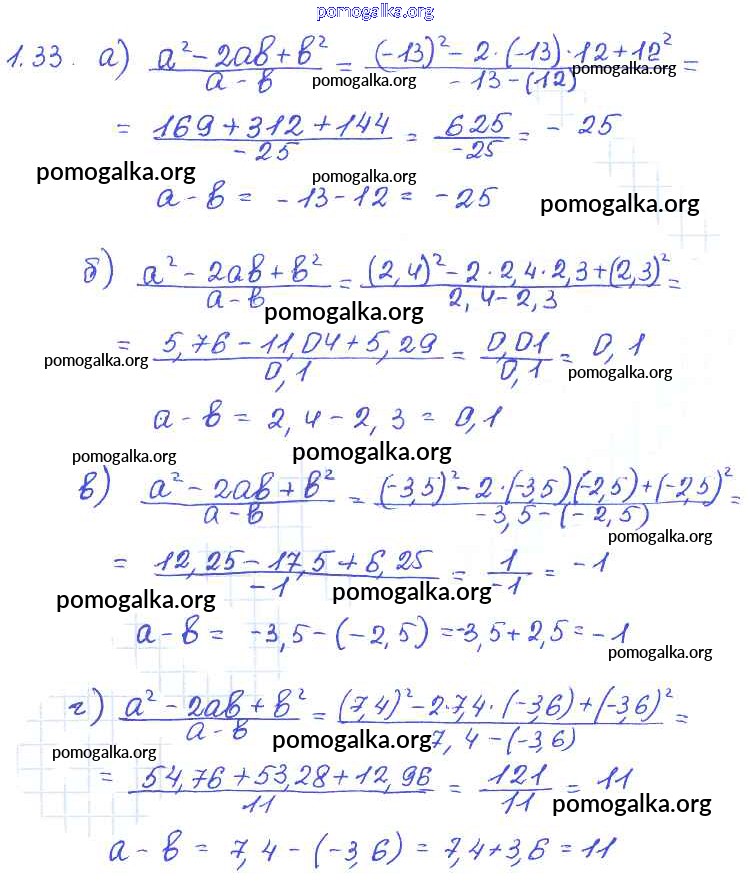 pomogalka.org
1.33. а) (a² - 2ab + b²)/(a - b) = ((-13)² - 2·(-13)·12 + 12²)/(-13 - (12)) =
pomogalka.org pomogalka.org
= (169 + 312 + 144)/(-25) = 625/(-25) = - 25
pomogalka.org pomogalka.org
a - b = -13 - 12 = -25 pomogalka.org
б) (a² - 2ab + b²)/(a - b) = ((2,4)² - 2·2,4·2,3 + (2,3)²)/(2,4 - 2,3) =
pomogalka.org
= (5,76 - 11,04 + 5,29)/(0,1) = (0,01)/(0,1) = 0,1
pomogalka.org pomogalka.org
a - b = 2,4 - 2,3 = 0,1
pomogalka.org
в) (a² - 2ab + b²)/(a - b) = ((-3,5)² - 2·(-3,5)(-2,5) + (-2,5)²)/(-3,5 - (-2,5)) =
pomogalka.org
= (12,25 - 17,5 + 6,25)/(-1) = 1/(-1) = -1
pomogalka.org pomogalka.org
a - b = -3,5 - (-2,5) = -3,5 + 2,5 = -1
pomogalka.org
г) (a² - 2ab + b²)/(a - b) = ((7,4)² - 2·7,4·(-3,6) + (-3,6)²)/(7,4 - (-3,6)) =
pomogalka.org pomogalka.org
= (54,76 + 53,28 + 12,96)/11 = 121/11 = 11
pomogalka.org
a - b = 7,4 - (-3,6) = 7,4 + 3,6 = 11